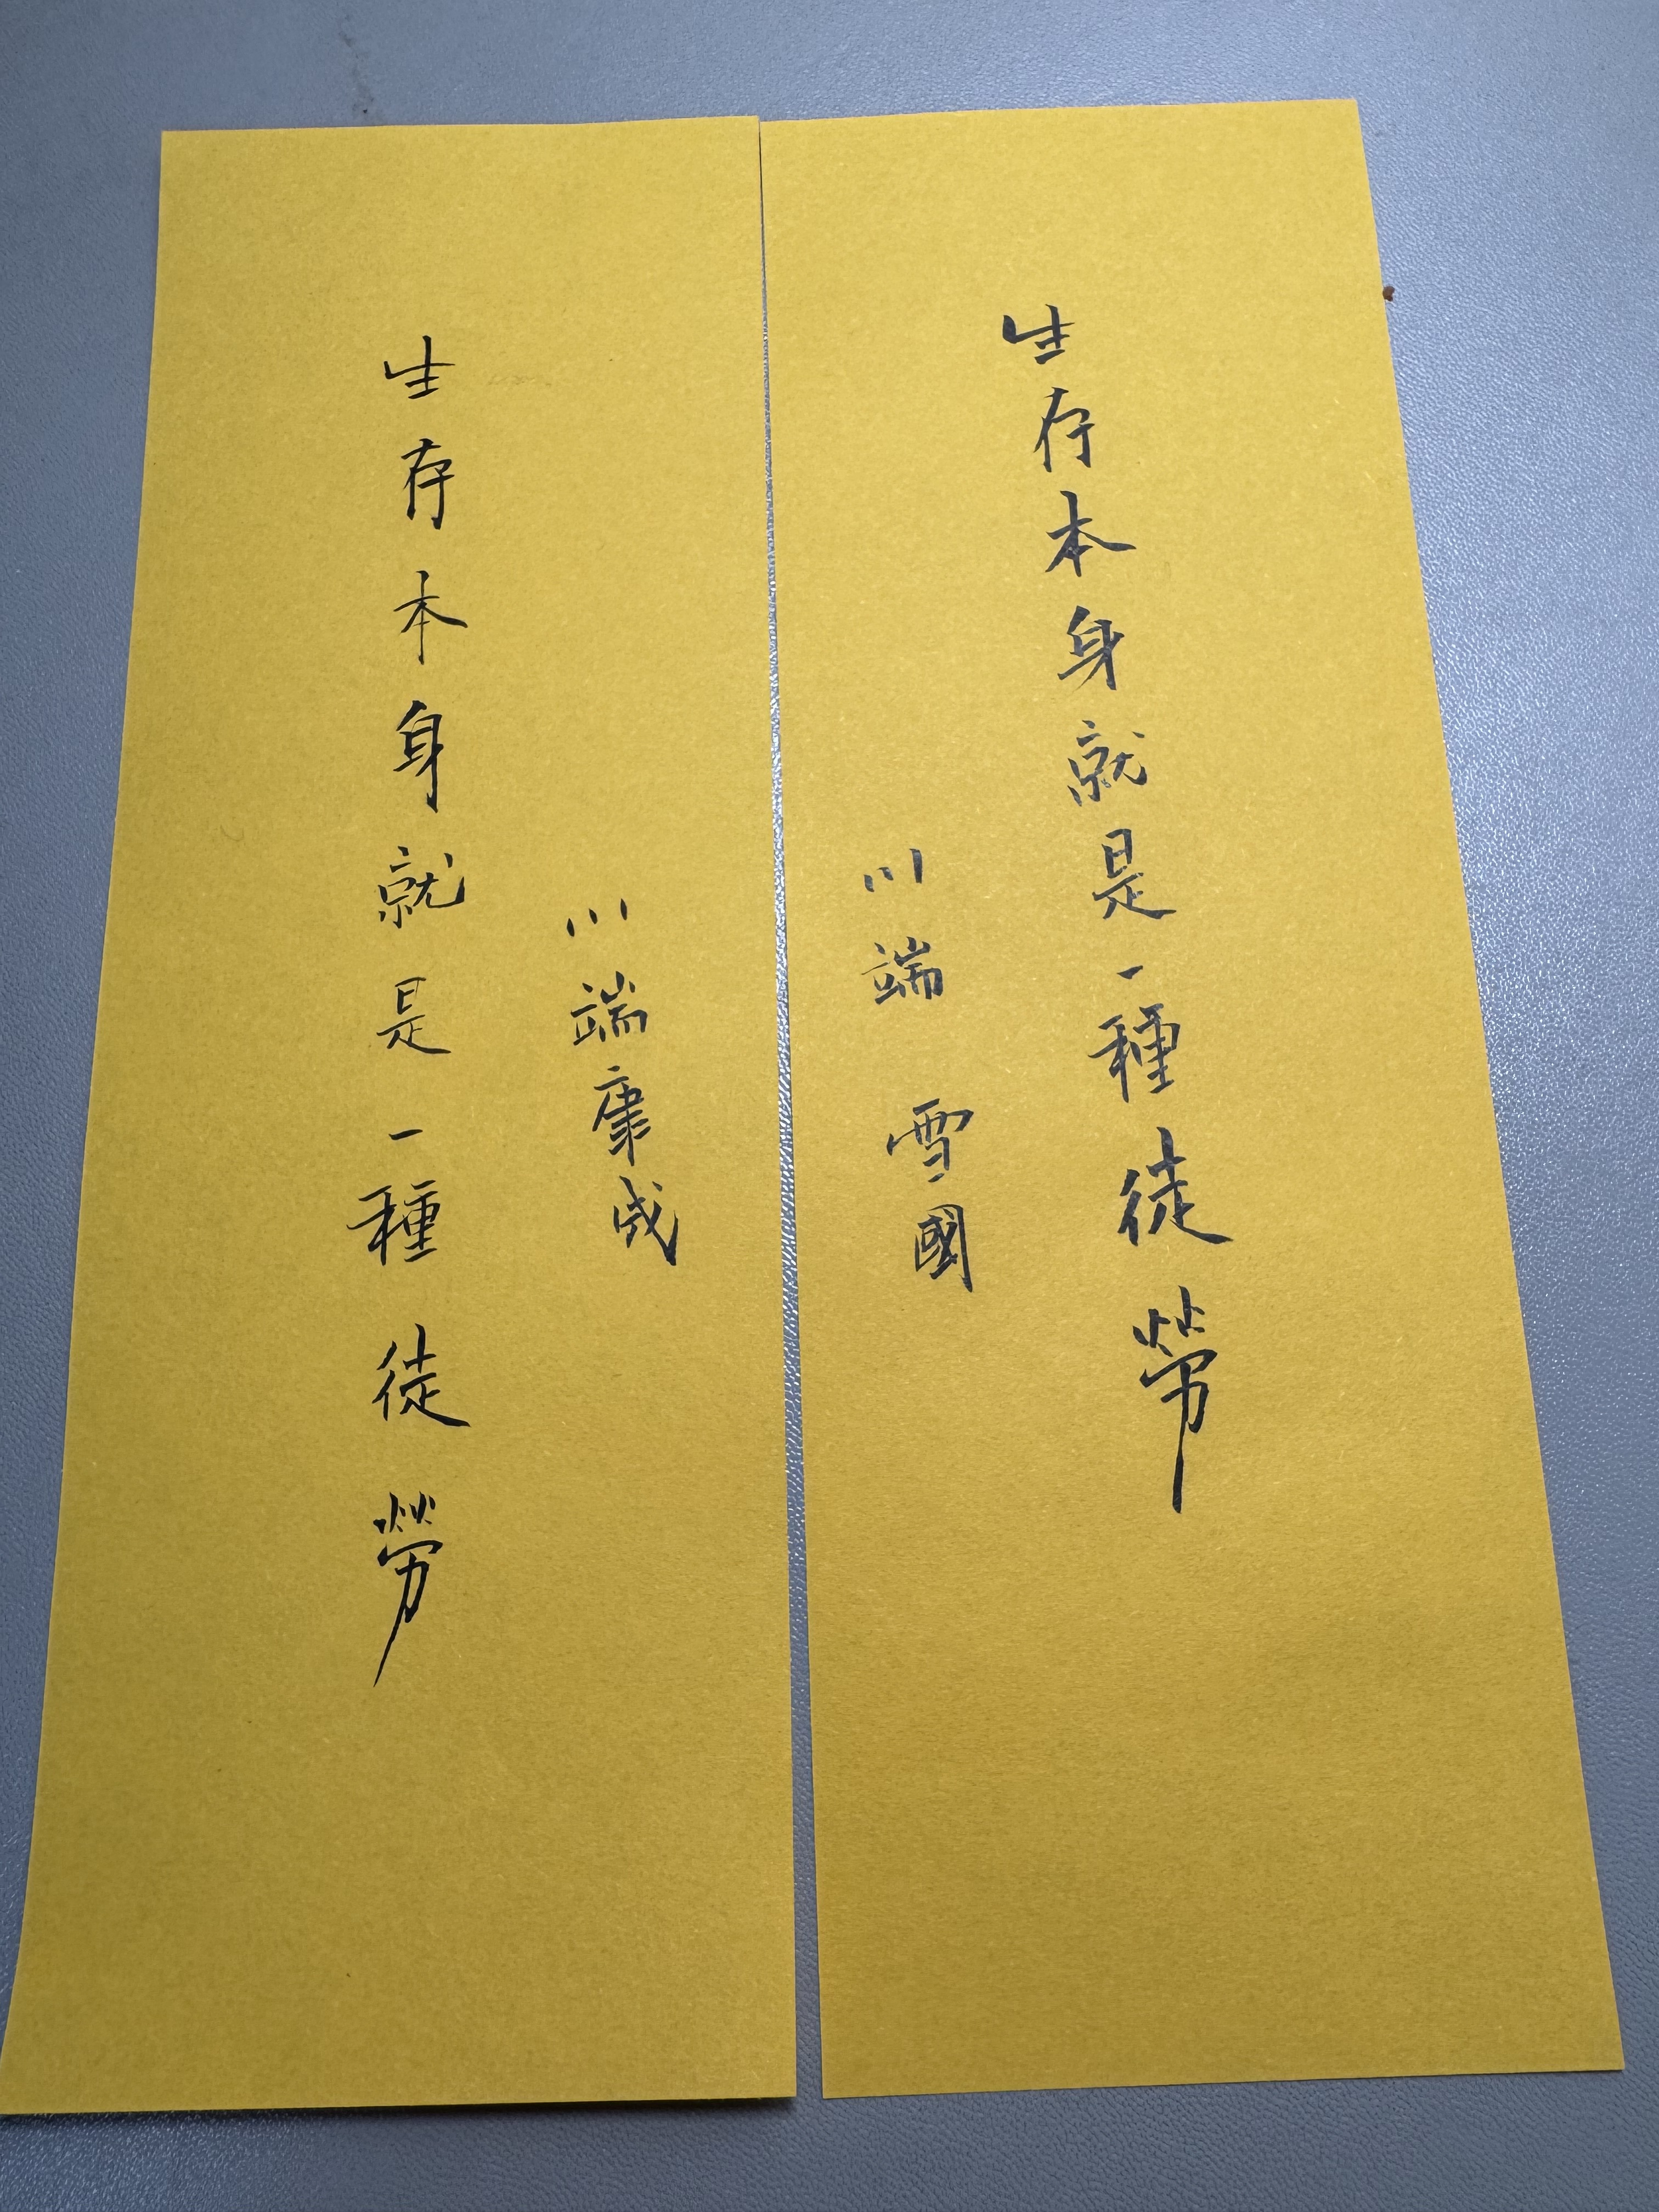 生存本身就是一種徒勞
川端 雪國
生存本身就是一種徒勞
川端康成